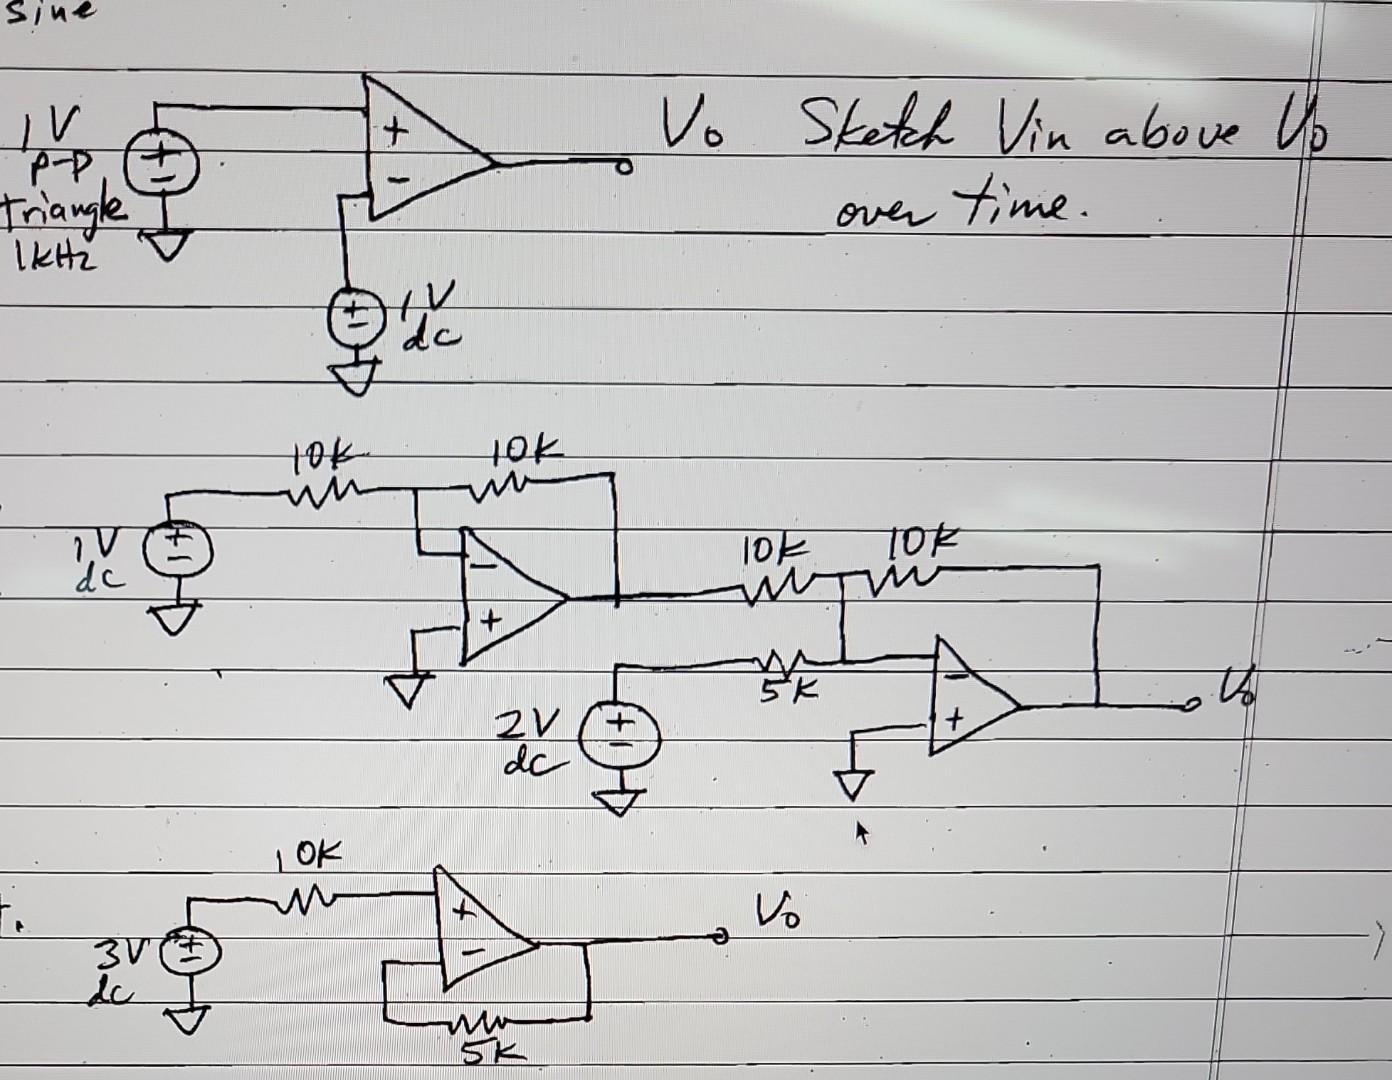 sine
1V
p-p
triangle
1kHz
+
-
+
-
1V
dc
Vo Sketch Vin above Vo
over time.
10K 10K
1V
dc
+
-
-
+
10K 10K
5K
2V
dc
+
-
-
+
Vo
10K
3V
dc
+
-
+
-
5K
Vo